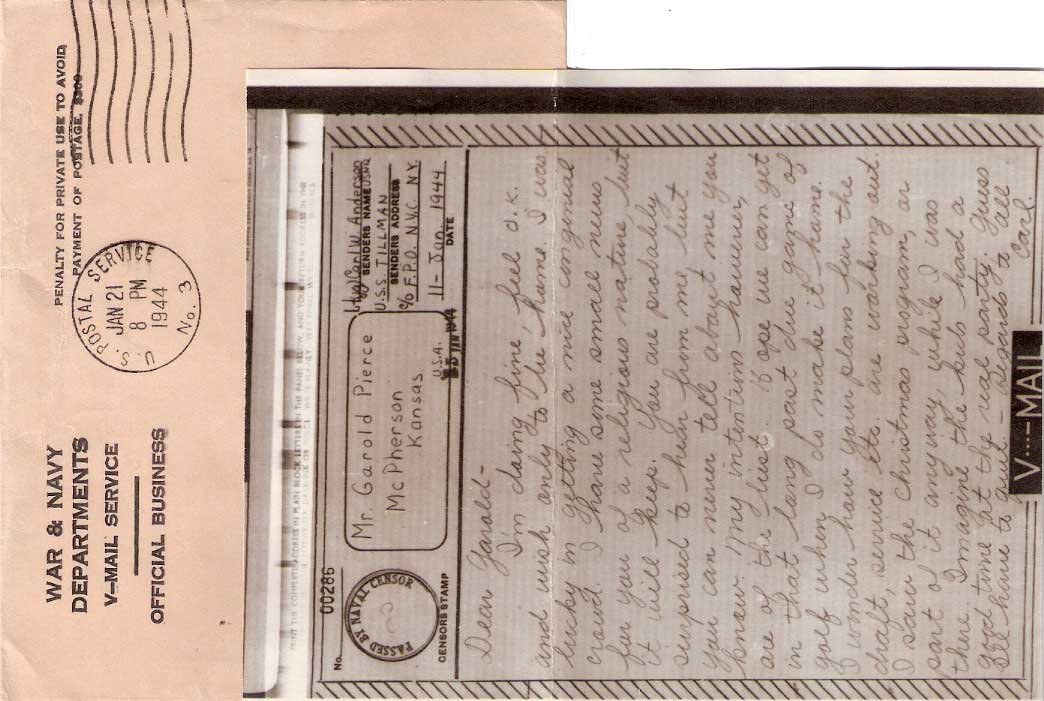 WAR & NAVY
DEPARTMENTS
V–MAIL SERVICE
OFFICIAL BUSINESS
PENALTY FOR PRIVATE USE TO AVOID
PAYMENT OF POSTAGE, $300
U.S. POSTAL SERVICE
JAN 21
8 PM
1944
No. 3
PRINT THE COMPLETE ADDRESS IN PLAIN BLOCK LETTERS IN THE PANEL BELOW, AND YOUR RETURN ADDRESS IN THE
No.
00286
PASSED BY NAVAL CENSOR
CENSORS STAMP
Mr. Garold Pierce
McPherson
Kansas
U.S.A.
Carl W. Anderson USNR
SENDERS NAME
U.S.S. TILLMAN
SENDERS ADDRESS
c/o F.P.O. N.Y.C. N.Y.
11 - Jan. 1944
DATE
Dear Garold-
Im doing fine, feel O.K.
and wish only to be home. I was
lucky in getting a nice congenial
crowd. I have some small news
for you of a religious nature but
it will keep. You are probably
surprised to hear from me, but
you can never tell about me you
know. My intentions however,
are of the best. I hope we can get
in that long past due game of
golf when I do make it home.
I wonder how your plans for the
draft, service etc. are working out.
I saw the christmas program, or
part of it anyway while I was
there. Imagine the kids had a
good time at the real party. Guess
I'll have to quit - regards to all
Carl.
V···–MAIL